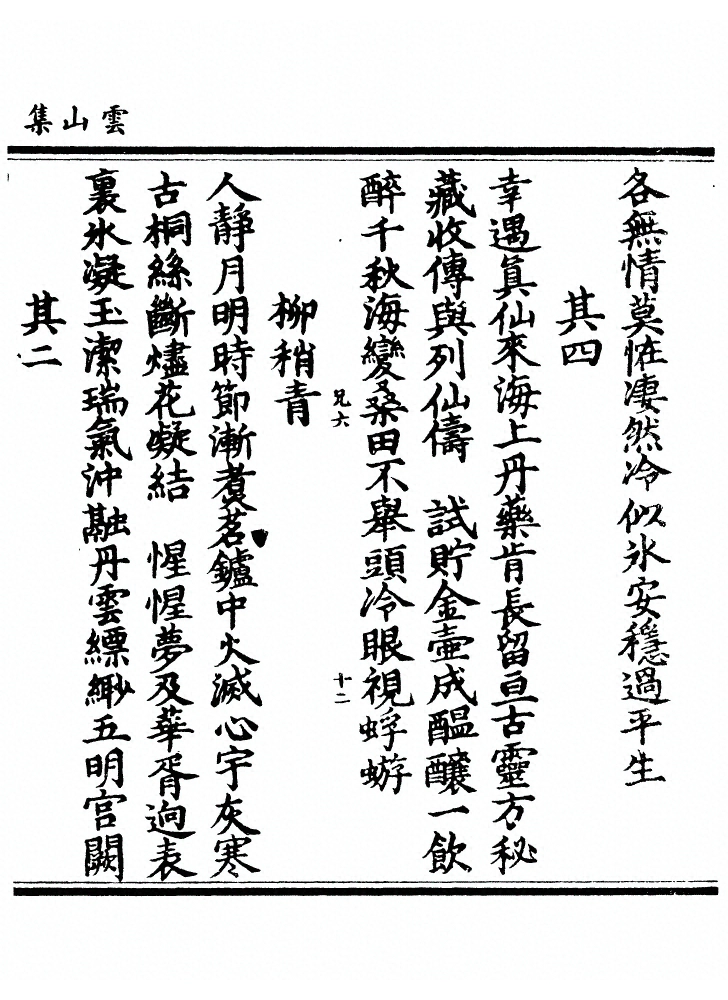 雲山集
各無情莫怪凄然冷似氷安穩過平生
其四
幸遇眞仙來海上丹藥肯長留亘古靈方秘
藏收傳與列仙儔　試貯金壺成醞釀一飮
醉千秋海變桑田不舉頭冷眼視蜉蝣
兄六
十二
柳稍青
人靜月明時節漸煑茗鑪中火滅心宇灰寒
古桐絲斷燼花凝結　惺惺夢及華胥逈表
裏氷凝玉潔瑞氣沖融丹雲縹緲五明宫闕
其二